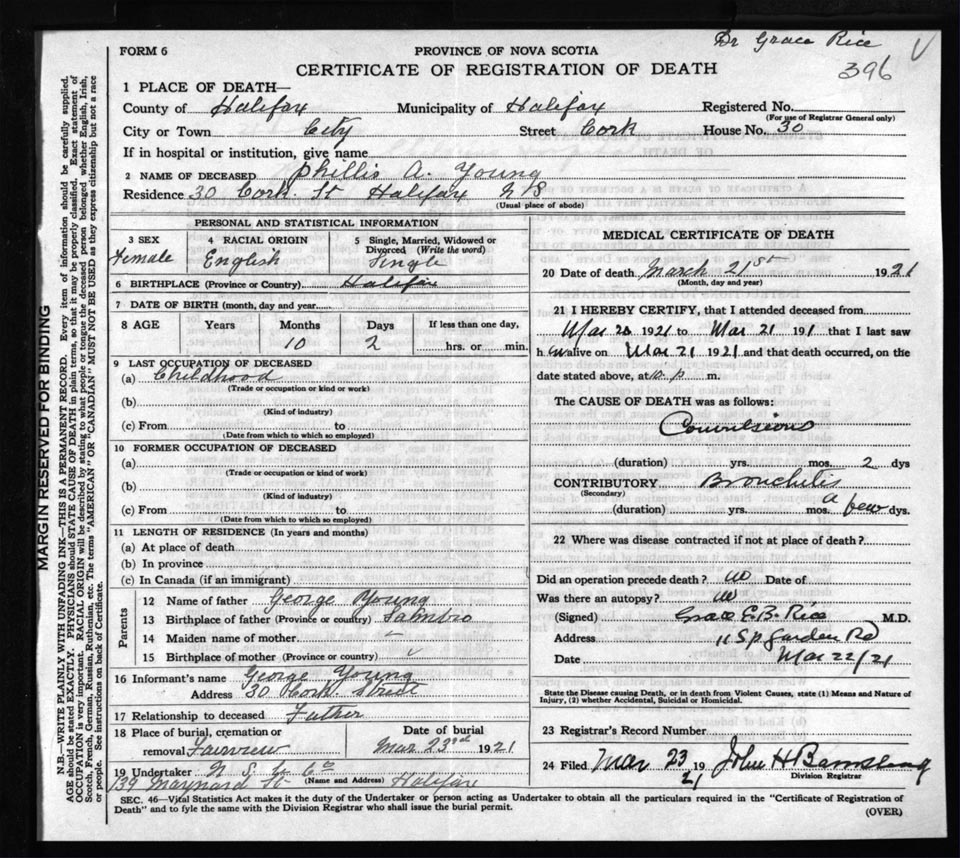 Dr Grace Rice
396
FORM 6
PROVINCE OF NOVA SCOTIA
CERTIFICATE OF REGISTRATION OF DEATH
1 PLACE OF DEATH—
County of Halifax Municipality of Halifax Registered No.
(For use of Registrar General only)
City or Town City Street Cork House No. 30
If in hospital or institution, give name
2 NAME OF DECEASED Phillis A. Young
Residence 30 Cork St Halifax N S
(Usual place of abode)
PERSONAL AND STATISTICAL INFORMATION
3 SEX 4 RACIAL ORIGIN 5 Single, Married, Widowed or Divorced (Write the word)
Female English Single
6 BIRTHPLACE (Province or Country) Halifax
7 DATE OF BIRTH (month, day and year)
8 AGE Years Months Days If less than one day,
10 2 hrs. or min.
9 LAST OCCUPATION OF DECEASED
(a) Childhood
(Trade or occupation or kind or work)
(b)
(Kind of industry)
(c) From to
(Date from which to which so employed)
10 FORMER OCCUPATION OF DECEASED
(a)
(Trade or occupation or kind of work)
(b)
(Kind of industry)
(c) From to
(Date from which to which so employed)
11 LENGTH OF RESIDENCE (In years and months)
(a) At place of death
(b) In province
(c) In Canada (if an immigrant)
Parents
12 Name of father George Young
13 Birthplace of father (Province or country) Sambro
14 Maiden name of mother
15 Birthplace of mother (Province or country)
16 Informant's name George Young
Address 30 Cork Street
17 Relationship to deceased Father
18 Place of burial, cremation or Date of burial
removal Fairview Mar 23rd 1921
19 Undertaker N S U Co (Name and Address)
139 Maynard St Halifax
MEDICAL CERTIFICATE OF DEATH
20 Date of death March 21st 1921
(Month, day and year)
21 I HEREBY CERTIFY, that I attended deceased from
Mar 20 1921 to Mar 21 191 that I last saw
h er alive on Mar 21 1921 and that death occurred, on the
date stated above, at p m.
The CAUSE OF DEATH was as follows:
Convulsions
(duration) yrs. mos. 2 dys
CONTRIBUTORY Bronchitis
(Secondary)
(duration) yrs. mos. a few dys.
22 Where was disease contracted if not at place of death?
Did an operation precede death? no Date of
Was there an autopsy? no
(Signed) Grace E.B. Rice M.D.
Address 11 Sp Garden Rd
Date Mar 22/21
State the Disease causing Death, or in death from Violent Causes, state (1) Means and Nature of
Injury, (2) whether Accidental, Suicidal or Homicidal.
23 Registrar's Record Number
24 Filed Mar 23 19 21 John H
Division Registrar
SEC. 46—Vital Statistics Act makes it the duty of the Undertaker or person acting as Undertaker to obtain all the particulars required in the "Certificate of Registration of
Death" and to fyle the same with the Division Registrar who shall issue the burial permit.
(OVER)
MARGIN RESERVED FOR BINDING
N.B.—WRITE PLAINLY WITH UNFADING INK—THIS IS A PERMANENT RECORD. Every item of information should be carefully supplied.
AGE should be stated EXACTLY. PHYSICIANS should STATE CAUSE OF DEATH in plain terms, so that it may be properly classified. Exact statement of
OCCUPATION is very important. RACIAL ORIGIN will be described by stating to what people or tongue the deceased person belonged whether English, Irish,
Scotch, French, German, Russian, Ruthenian, etc. The terms "AMERICAN" OR "CANADIAN" MUST NOT BE USED as they express citizenship but not a race
or people. See instructions on back of Certificate.